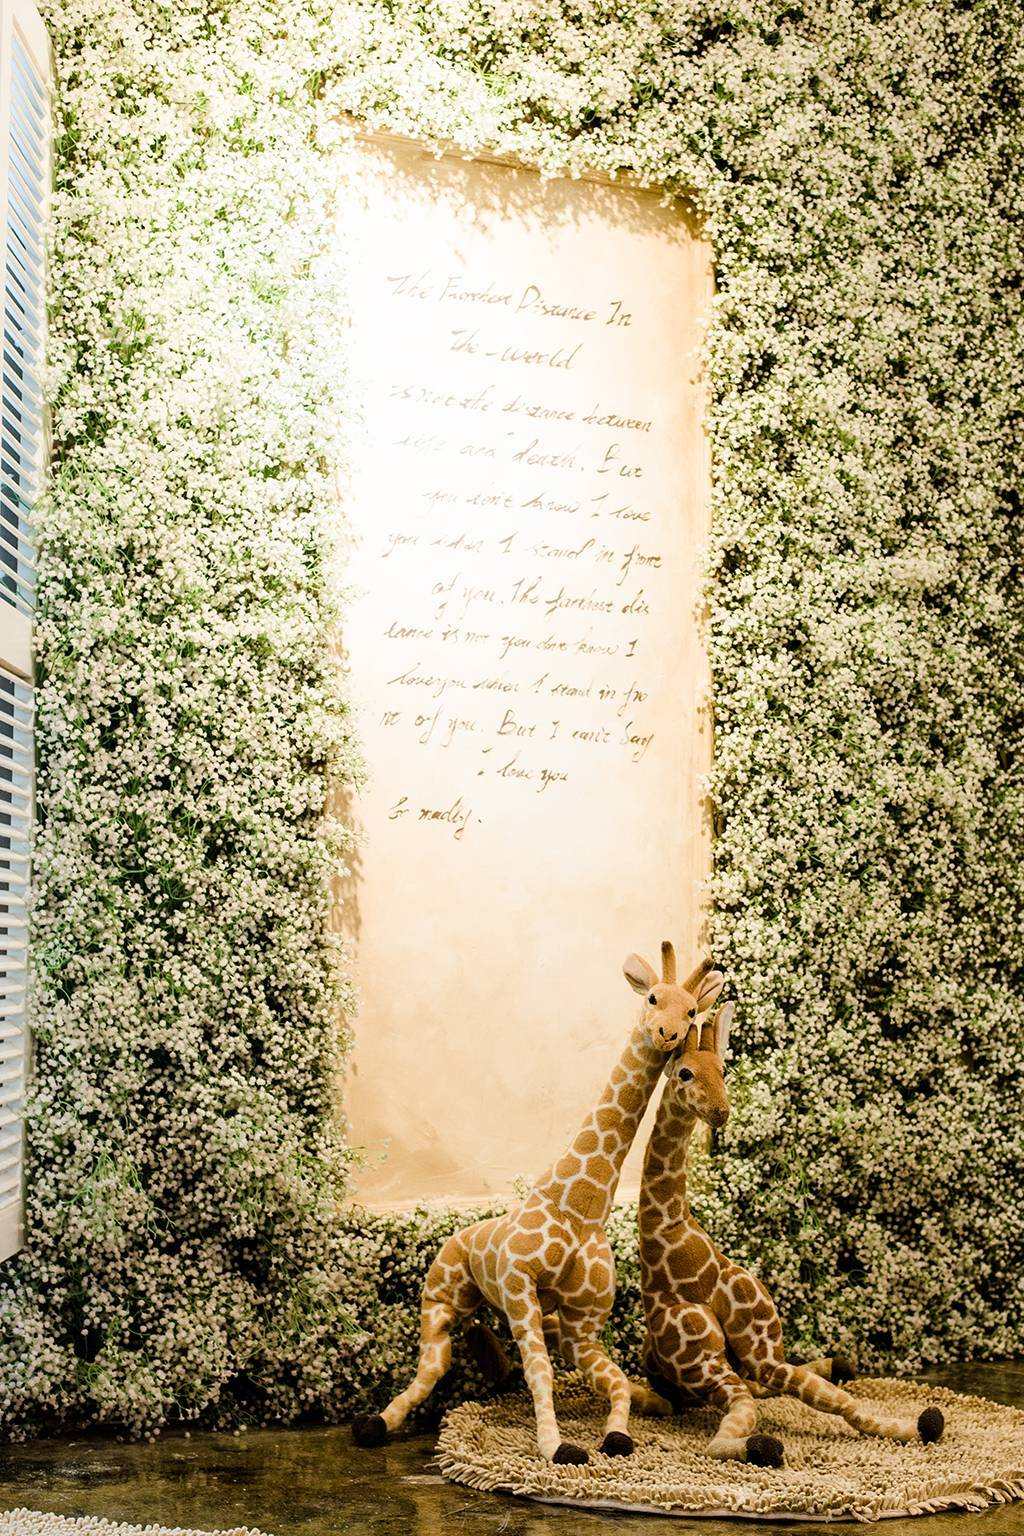 The Farthest Distance In
The-world
is not the distance between
life and death. But
you don't know I love
you when I stand in front
of you. The farthest dis
tance is not you don't know I
love you when I stand in fro
nt of you. But I can't Say
I love you
So madly.